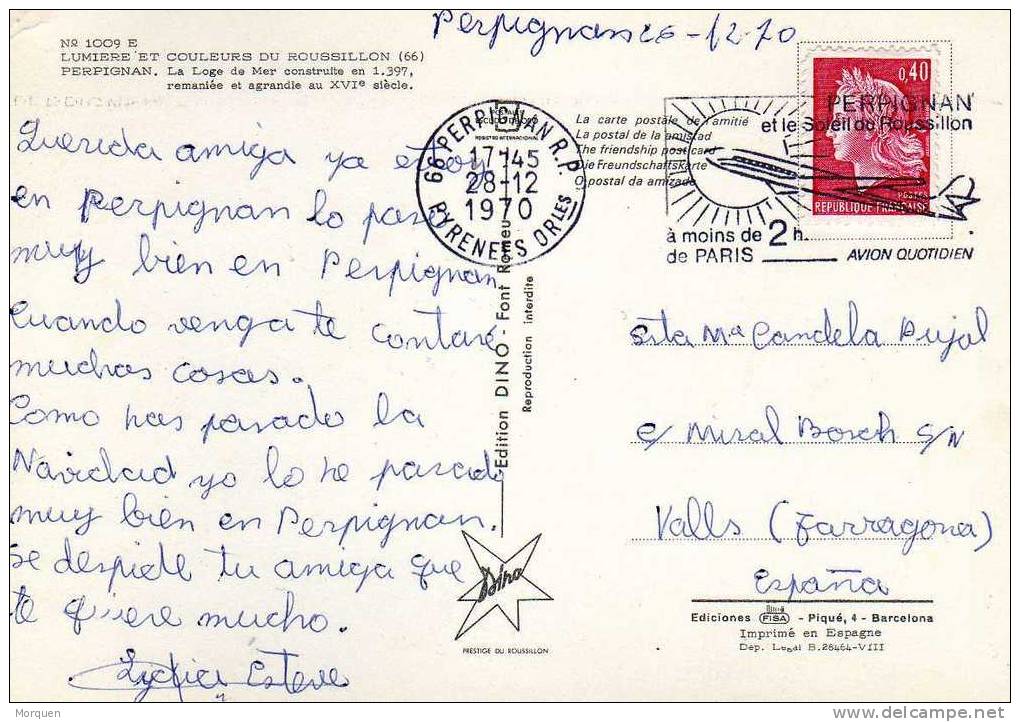 Perpignan 26-12-70
Nº 1009 E
LUMIERE ET COULEURS DU ROUSSILLON (66)
PERPIGNAN. La Loge de Mer construite en 1.397,
remaniée et agrandie au XVIe siècle.
Querida amiga ya estoy
en Perpignan lo paso
muy bien en Perpignan
Cuando venga te contaré
muchas cosas.
Como has pasado la
Navidad yo lo he pasado
muy bien en Perpignan.
Se despide tu amiga que
te quiere mucho.
Lydia Esteve
66 PERPIGNAN R.P.
17-45
28-12
1970
PYRENEES ORles
La carte postale de l'amitié
La postal de la amistad
The friendship post card
Die Freundschaftskarte
O postal da amizade
0,40
POSTES
REPUBLIQUE FRANÇAISE
PERPIGNAN
et le Soleil du Roussillon
à moins de 2 h.
de PARIS
AVION QUOTIDIEN
Edition DINO - Font Romeu
Reproduction interdite
Srta Mª Candela Pujol
c/ Miral Bosch s/N
Valls (Tarragona)
España
Dino
PRESTIGE DU ROUSSILLON
Ediciones FISA - Piqué, 4 - Barcelona
Imprimé en Espagne
Dep. Legal B. 28464-VIII
Morquen
www.delcampe.net